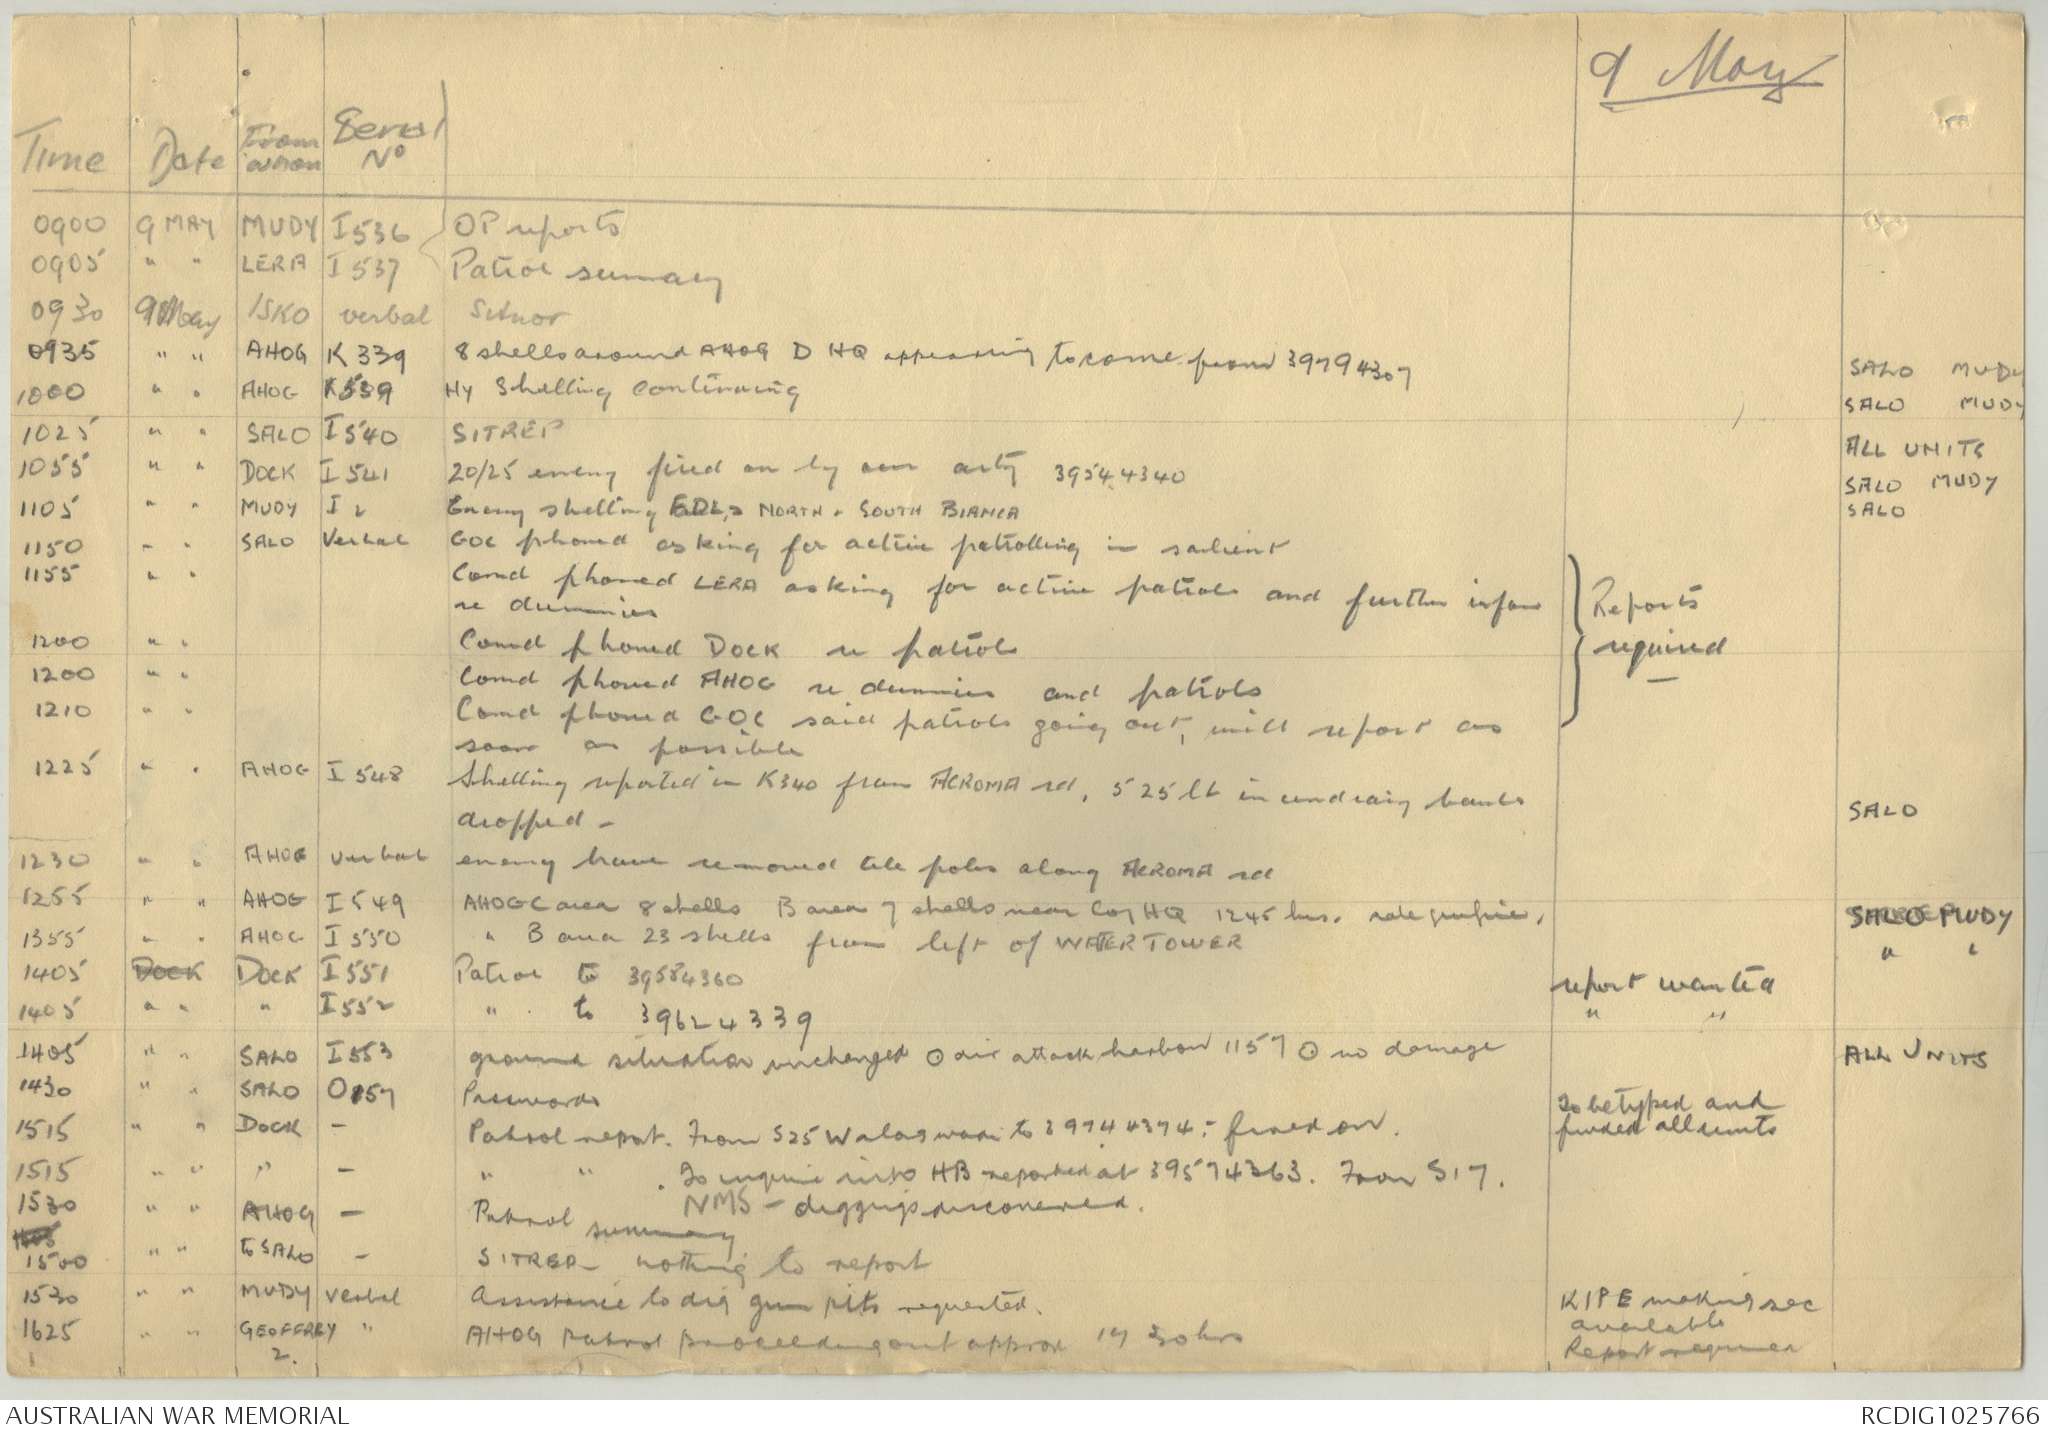 9 May
Time Date From whom Serial No
0900 9 MAY MUDY I 536 OP reports
0905 " " LERA I 537 Patrol summary
0930 9 May ISKO verbal Sitnor
0935 " " AHOG K 339 8 shells around AHOG D HQ appearing to come from 39794307 SALO MUDY
1000 " " AHOG K539 Hy Shelling continuing SALO MUDY
1025 " " SALO I 540 SITREP ALL UNITS
1055 " " DOCK I 541 20/25 enemy fired on by our arty 39544340 SALO MUDY
1105 " " MUDY I 2 Enemy shelling NORTH + SOUTH BIANCA SALO
1150 " " SALO Verbal GOC phoned asking for active patrolling in salient
1155 " " Comd phoned LERA asking for active patrols and further infor
re dummies
Reports
required
1200 " " Comd phoned DOCK re patrols
1200 " " Comd phoned AHOG re dummies and patrols
1210 " " Comd phoned GOC said patrols going out, will report as
soon as possible
1225 " " AHOG I 548 Shelling reported in K340 from ACROMA rd, 5 25 lb incendiary bombs
dropped - SALO
1230 " " AHOG verbal enemy have removed tele poles along ACROMA rd
1255 " " AHOG I 549 AHOG C area 8 shells B area 7 shells near Coy HQ 1245 hrs. SALO MUDY
1355 " " AHOG I 550 " B area 23 shells from left of WATER TOWER " "
1405 DOCK DOCK I 551 Patrol to 39584360 report wanted
1405 " " " I 552 " to 39624339 " "
1405 " " SALO I 553 ground situation unchanged ⊙ air attack harbour 1157 ⊙ no damage ALL UNITS
1430 " " SALO O157 Passwords To be typed and
all units
1515 " " DOCK - Patrol report. From S25 to 39744374 - fired on.
1515 " " " - " " . To inquire into HB reported at 39574363. From S17.
NMS - diggings discovered.
1530 " " AHOG - Patrol summary
1500 " " to SALO - SITREP - nothing to report
1530 " " MUDY verbal Assistance to dig gun pits requested. KIPE making sec
available
1625 " " GEOFFREY " AHOG Patrol proceeding out approx 1730 hrs Report required
2.
AUSTRALIAN WAR MEMORIAL RCDIG1025766